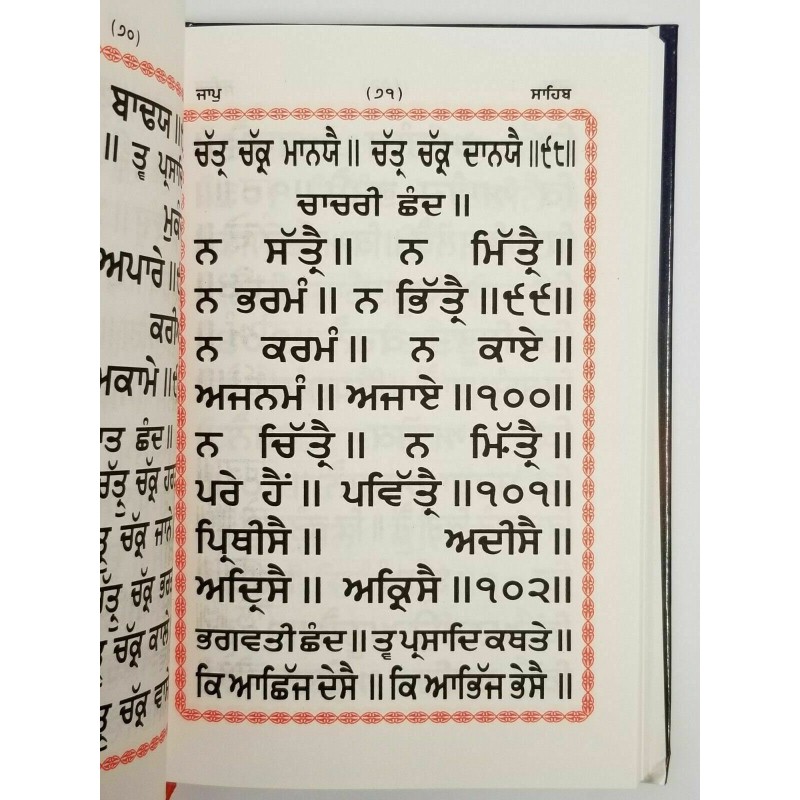 (੭੦)
ਬਾਢਯ ॥
॥ ਤ੍ਵ
ਅਪਾਰੇ ॥
ਅਕਾਮੇ ॥
ਛੰਦ ॥
ਚੱਕ੍ਰ
ਚੱਕ੍ਰ ਜਾਨੇ
ਚੱਕ੍ਰ
ਚੱਕ੍ਰ ਕਾਲੇ
ਚੱਕ੍ਰ
ਜਾਪੁ (੭੧) ਸਾਹਿਬ
ਚੱਤ੍ਰ ਚੱਕ੍ਰ ਮਾਨਯੈ ॥ ਚੱਤ੍ਰ ਚੱਕ੍ਰ ਦਾਨਯੈ ॥੯੮॥
ਚਾਚਰੀ ਛੰਦ ॥
ਨ ਸੱਤ੍ਰੈ ॥ ਨ ਮਿੱਤ੍ਰੈ ॥
ਨ ਭਰਮੰ ॥ ਨ ਭਿੱਤ੍ਰੈ ॥੯੯॥
ਨ ਕਰਮੰ ॥ ਨ ਕਾਏ ॥
ਅਜਨਮੰ ॥ ਅਜਾਏ ॥੧੦੦॥
ਨ ਚਿੱਤ੍ਰੈ ॥ ਨ ਮਿੱਤ੍ਰੈ ॥
ਪਰੇ ਹੈਂ ॥ ਪਵਿੱਤ੍ਰੈ ॥੧੦੧॥
ਪ੍ਰਿਥੀਸੈ ॥ ਅਦੀਸੈ ॥
ਅਦ੍ਰਿਸੈ ॥ ਅਕ੍ਰਿਸੈ ॥੧੦੨॥
ਭਗਵਤੀ ਛੰਦ ॥ ਤ੍ਵ ਪ੍ਰਸਾਦਿ ਕਥਤੇ ॥
ਕਿ ਆਛਿੱਜ ਦੇਸੈ ॥ ਕਿ ਆਭਿੱਜ ਭੇਸੈ ॥